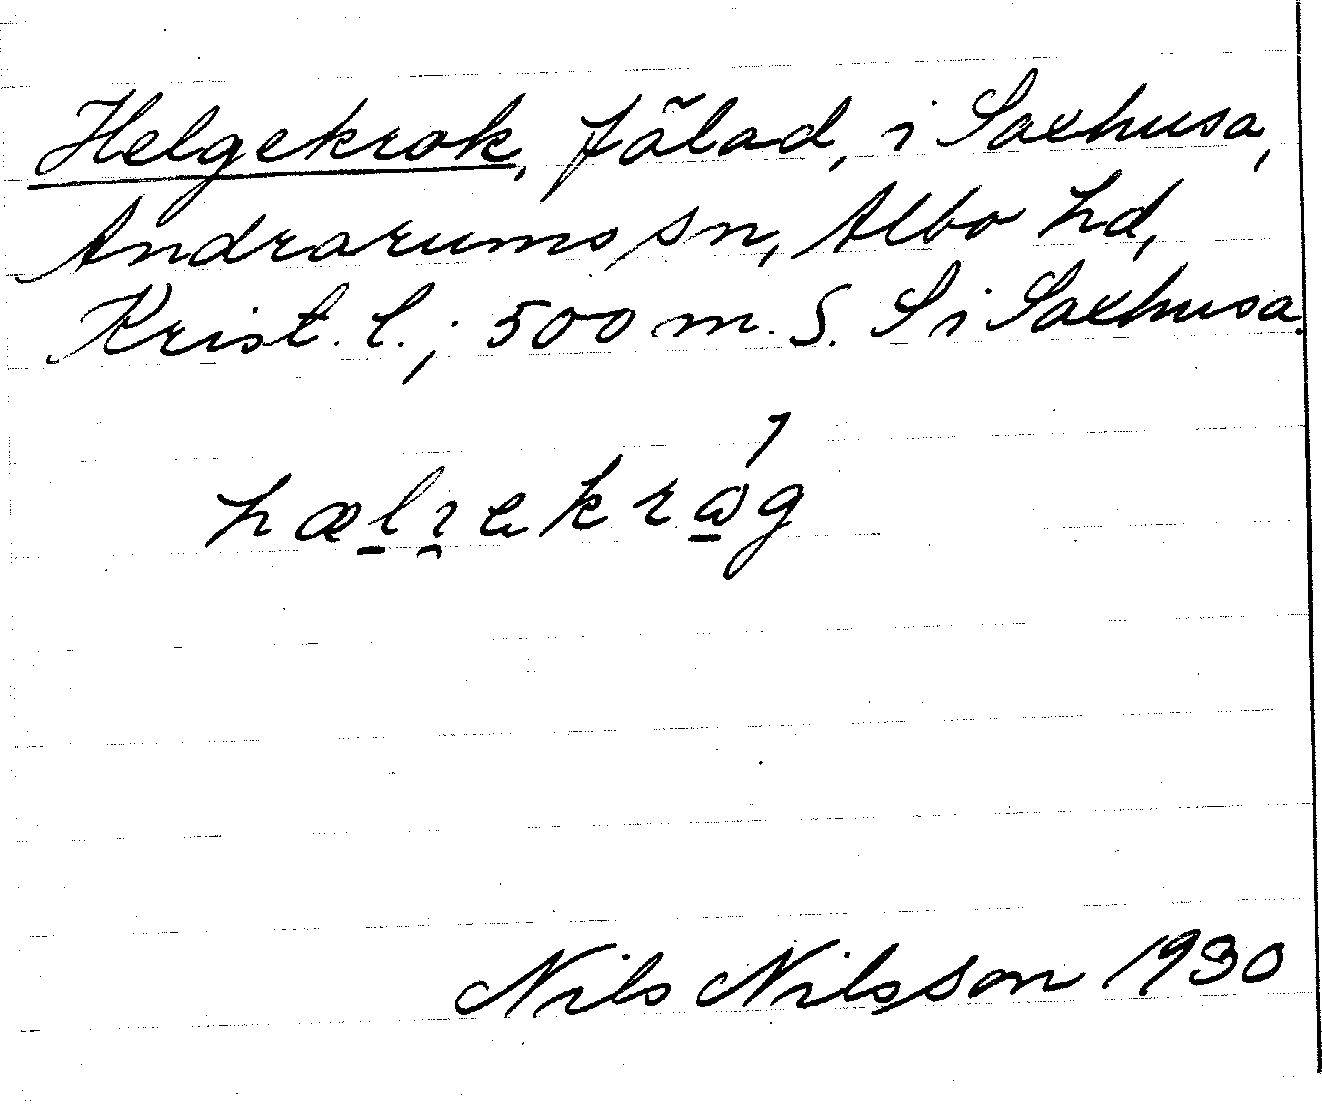 Helgekrok, fälad, i Saxhusa,
Andrarums sn, Albo hd,
Krist. l.; 500 m. S. S i Saxhusa.
Nils Nilsson 1930